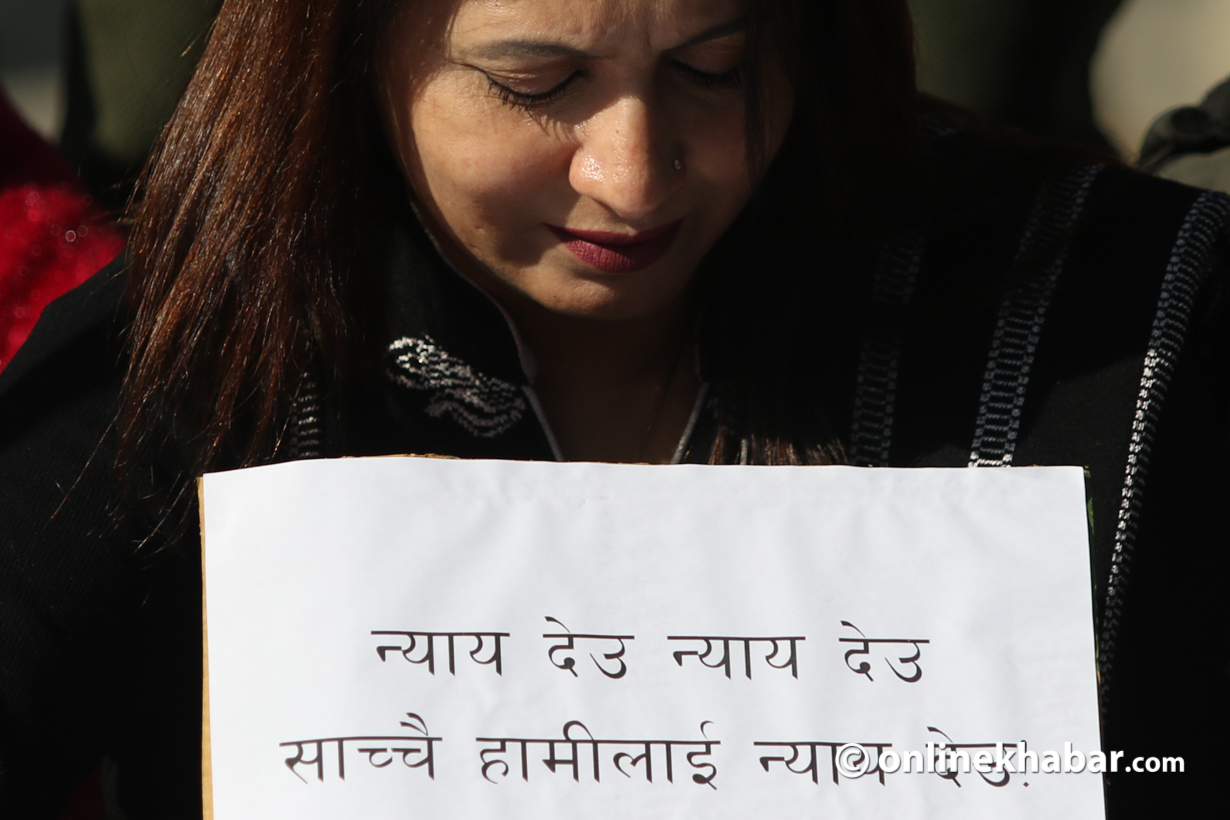 न्याय देउ न्याय देउ
साच्चै हामीलाई न्याय देउ.
©onlinekhabar.com